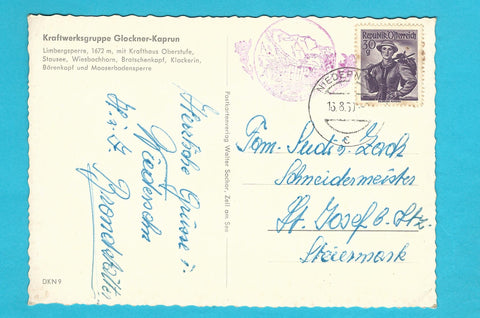 Kraftwerksgruppe Glockner-Kaprun
Limbergsperre, 1672 m, mit Krafthaus Oberstufe,
Stausee, Wiesbachhorn, Bratschenkopf, Klockerin,
Bärenkopf und Mooserbodensperre
Herzliche Grüsse u.
Wiedersehn
DKN 9
Postkartenverlag Walter Sochor, Zell am See
Republik Österreich
30
g
NIEDERN
16.8.
Fam.
Schneidermeister
St. Josef b. Stz.
Steiermark